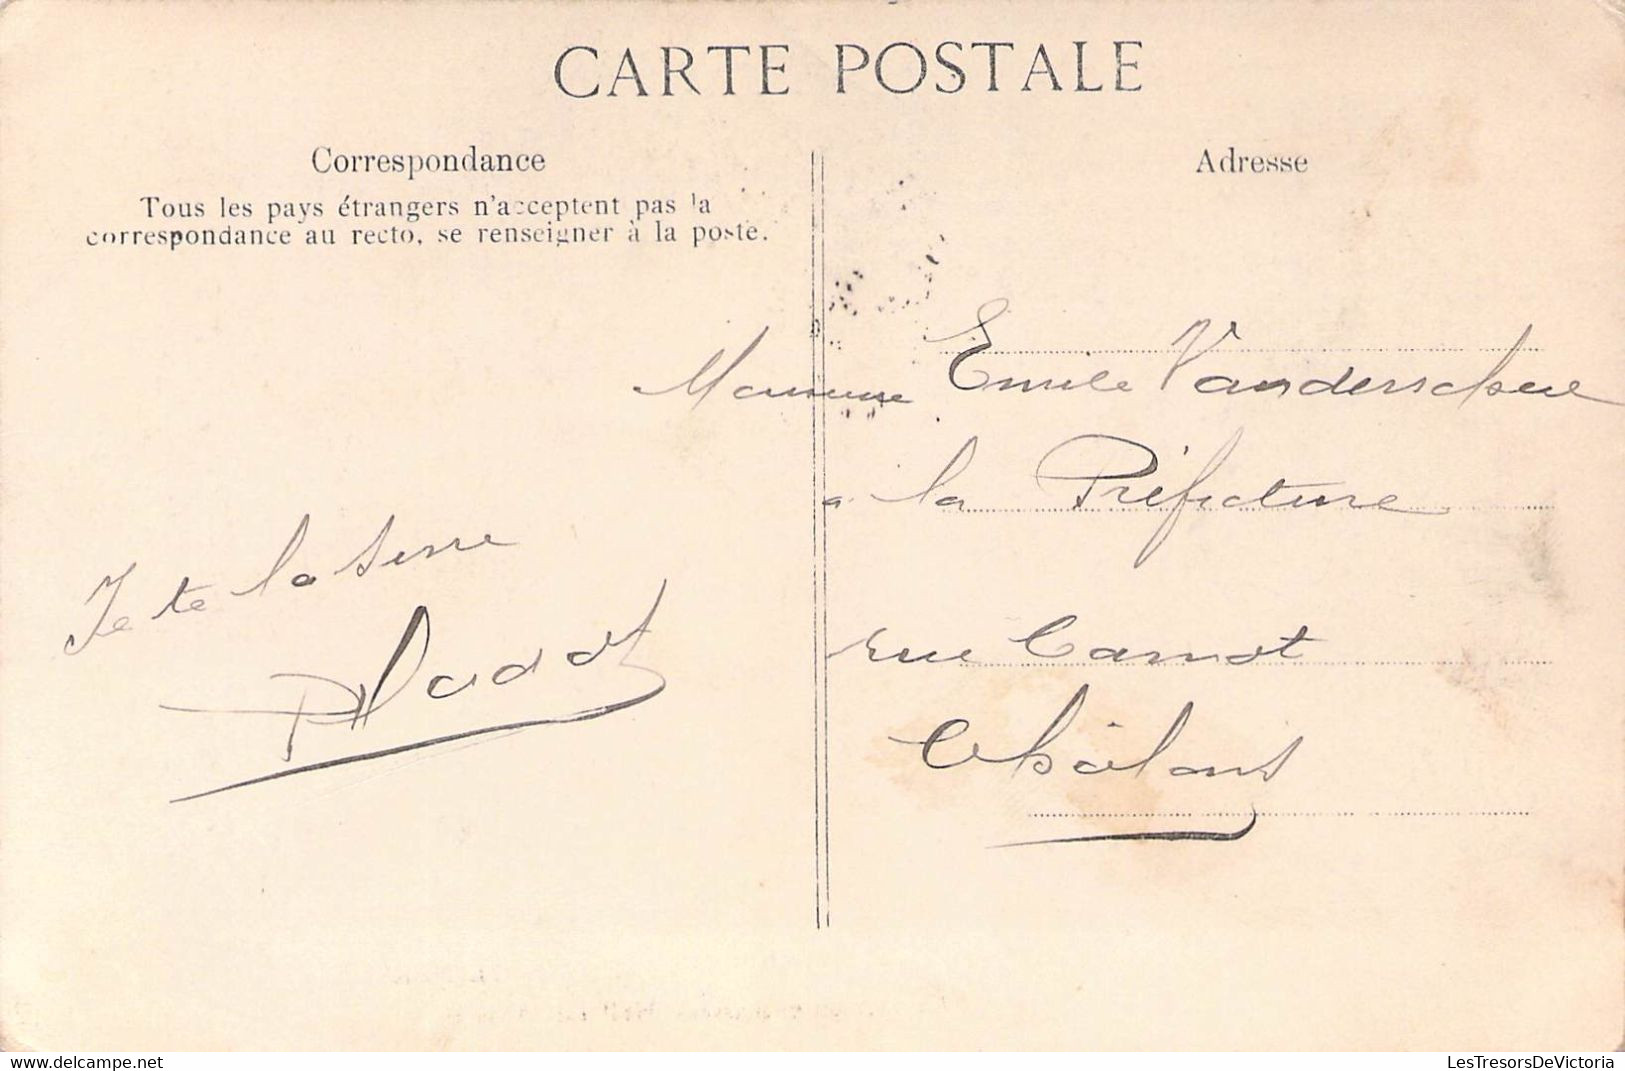 CARTE POSTALE
Correspondance
Tous les pays étrangers n'acceptent pas la
correspondance au recto, se renseigner à la poste.
Je te la serre
Adresse
Emile
a la Préfecture
rue Carnot
Châlons
LesTresorsDeVictoria